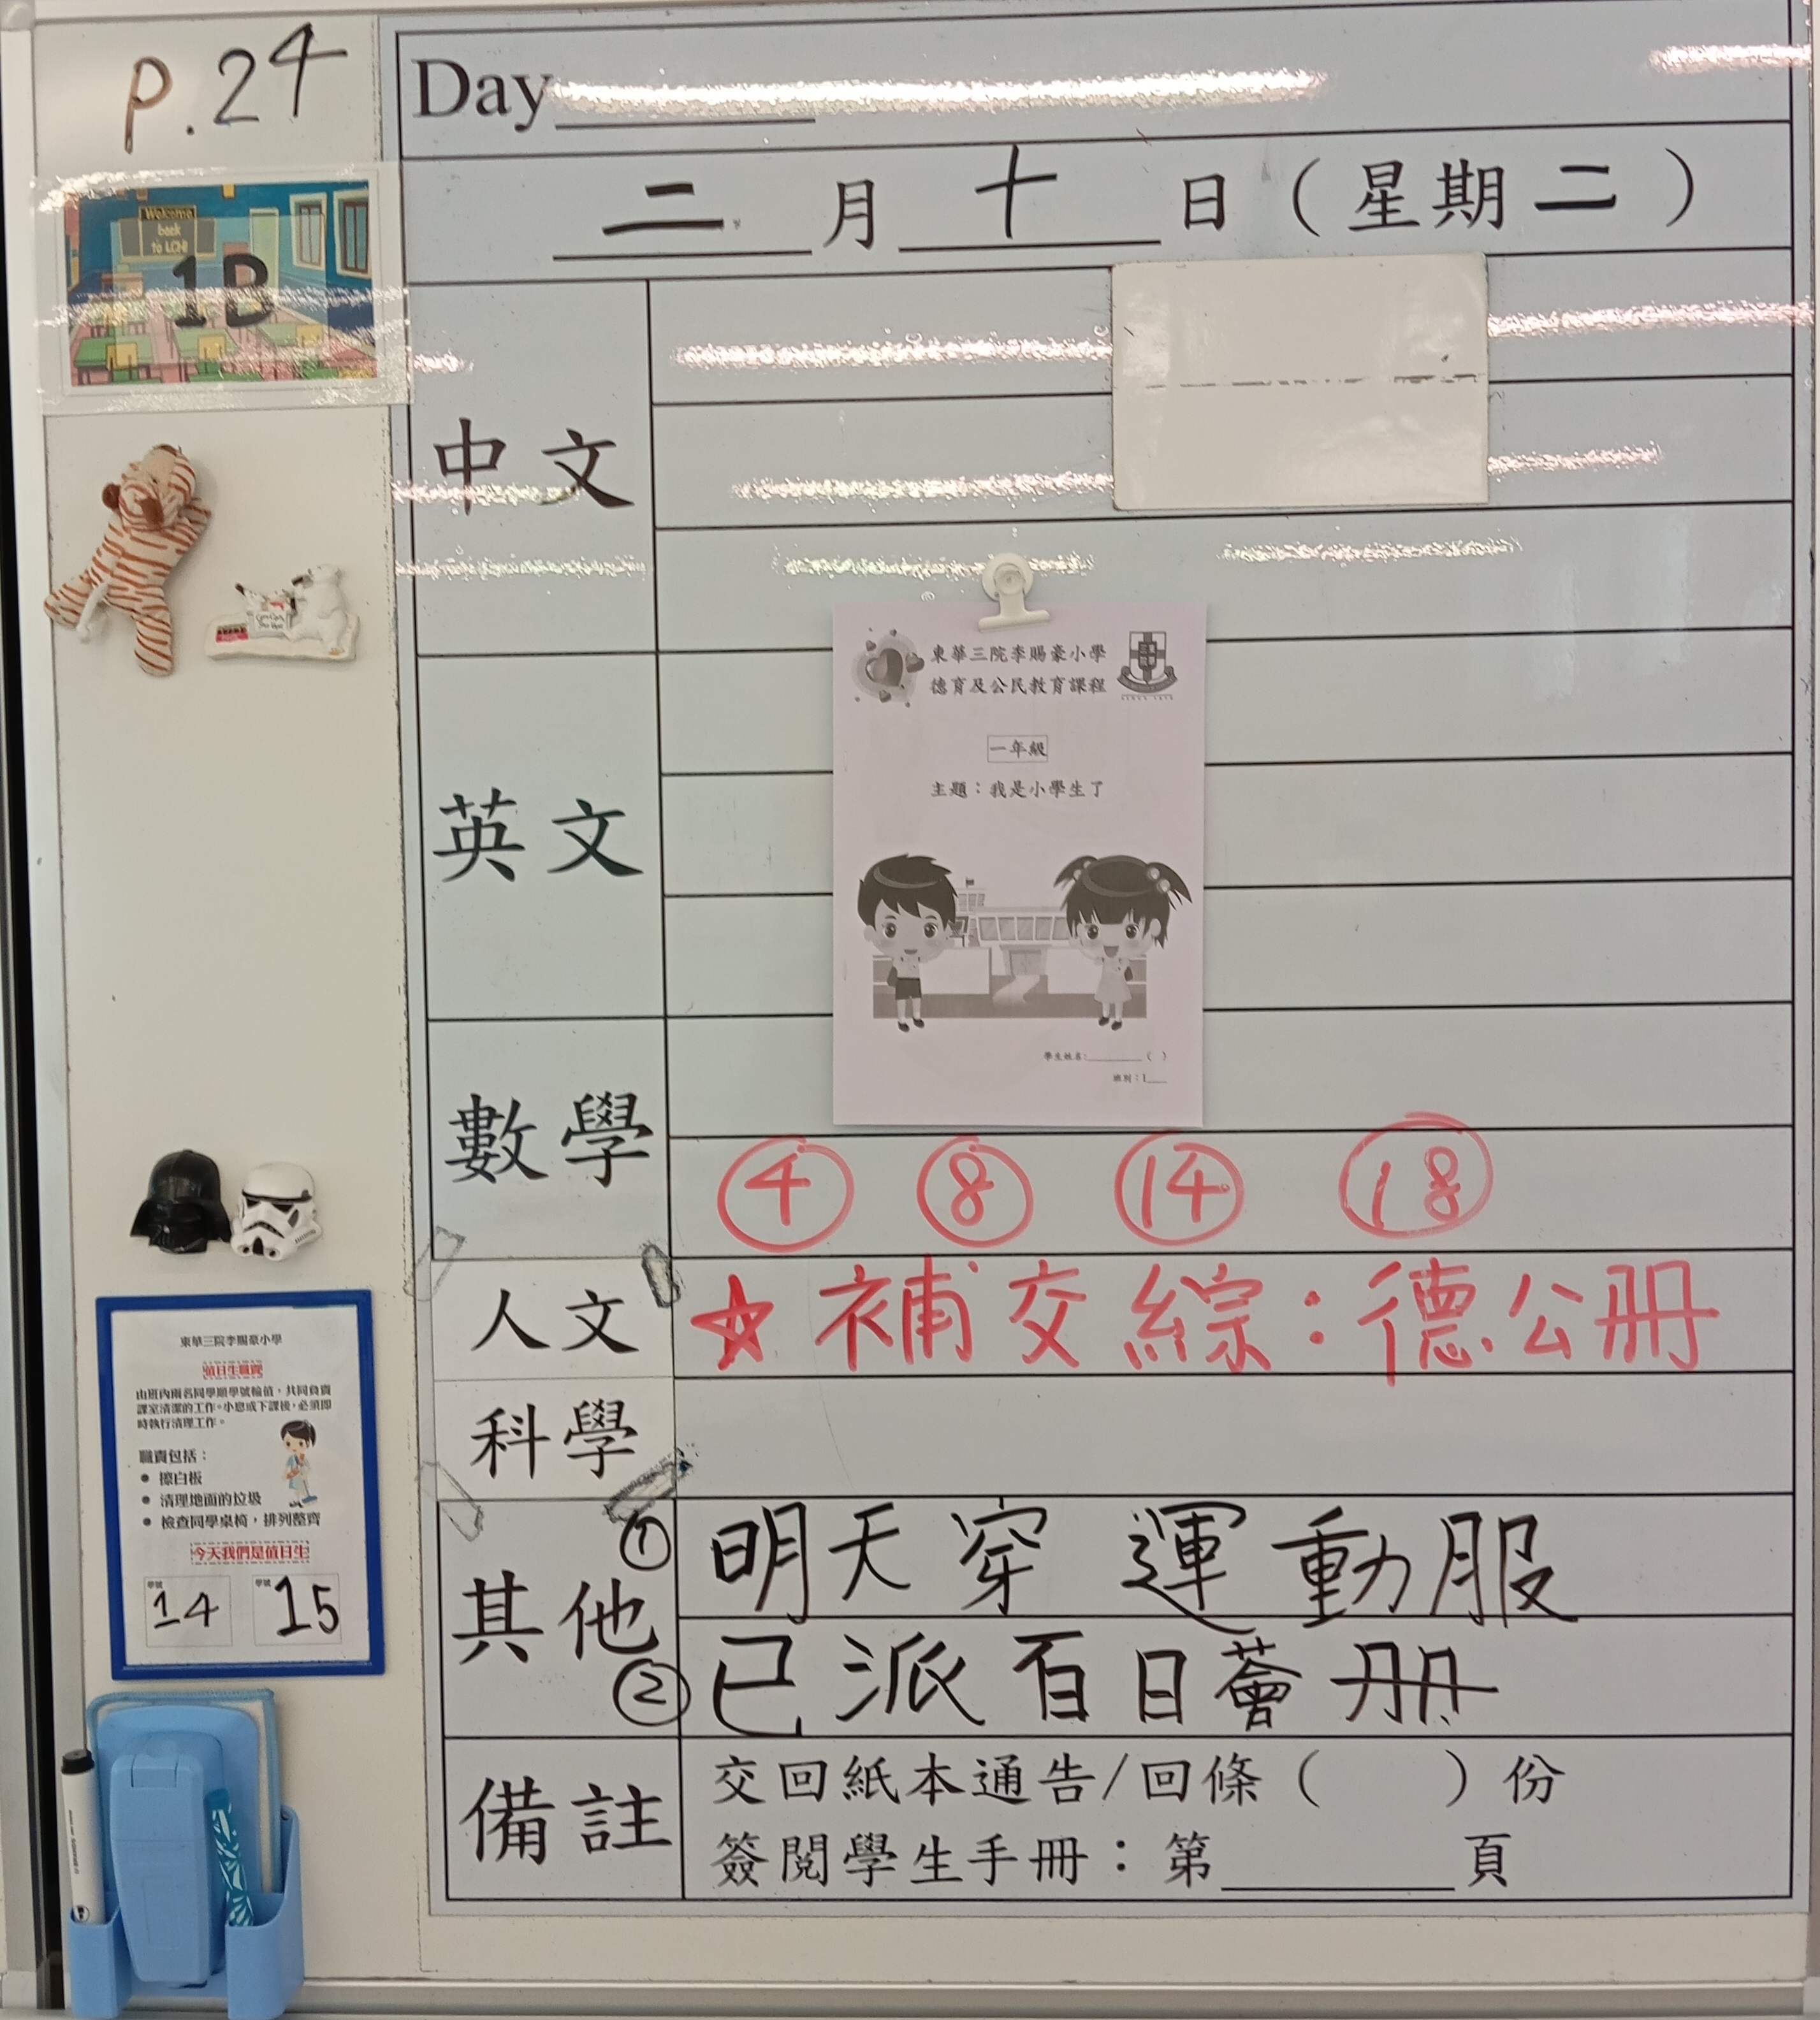 p.24
Day
二月十日（星期二）
Welcome
back
to LCH!
1B
中文
東華三院李賜豪小學
德育及公民教育課程
一年級
主題：我是小學生了
學生姓名：（ ）
班別：1
英文
數學
④ ⑧ ⑭ ⑱
人文
☆ 補交綜：德公冊
科學
其他
① 明天穿運動服
② 已派百日薈冊
備註
交回紙本通告/回條（ ）份
簽閱學生手冊：第 頁
東華三院李賜豪小學
值日生職責
由班內兩名同學順學號輪值，共同負責
課室清潔的工作。小息或下課後，必須即
時執行清理工作。
職責包括：
• 擦白板
• 清理地面的垃圾
• 檢查同學桌椅，排列整齊
今天我們是值日生
學號 14 學號 15